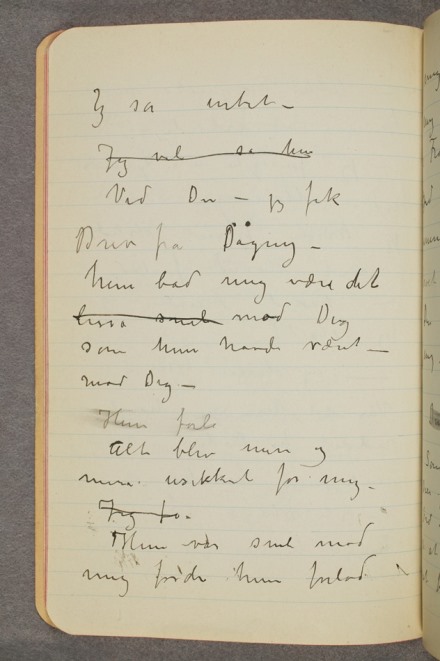 Jeg sa intet –
Jeg vil sa hun
Ved Du – jeg fik
Brev fra Dagny –
hun bad mig være det
mod Dig
som hun havde været –
mod Dig –
Hun forlo
Alt blev mere og
mere usikkert for mig.
Jeg fo.
Hun var snil mod
mig førde hun forlod